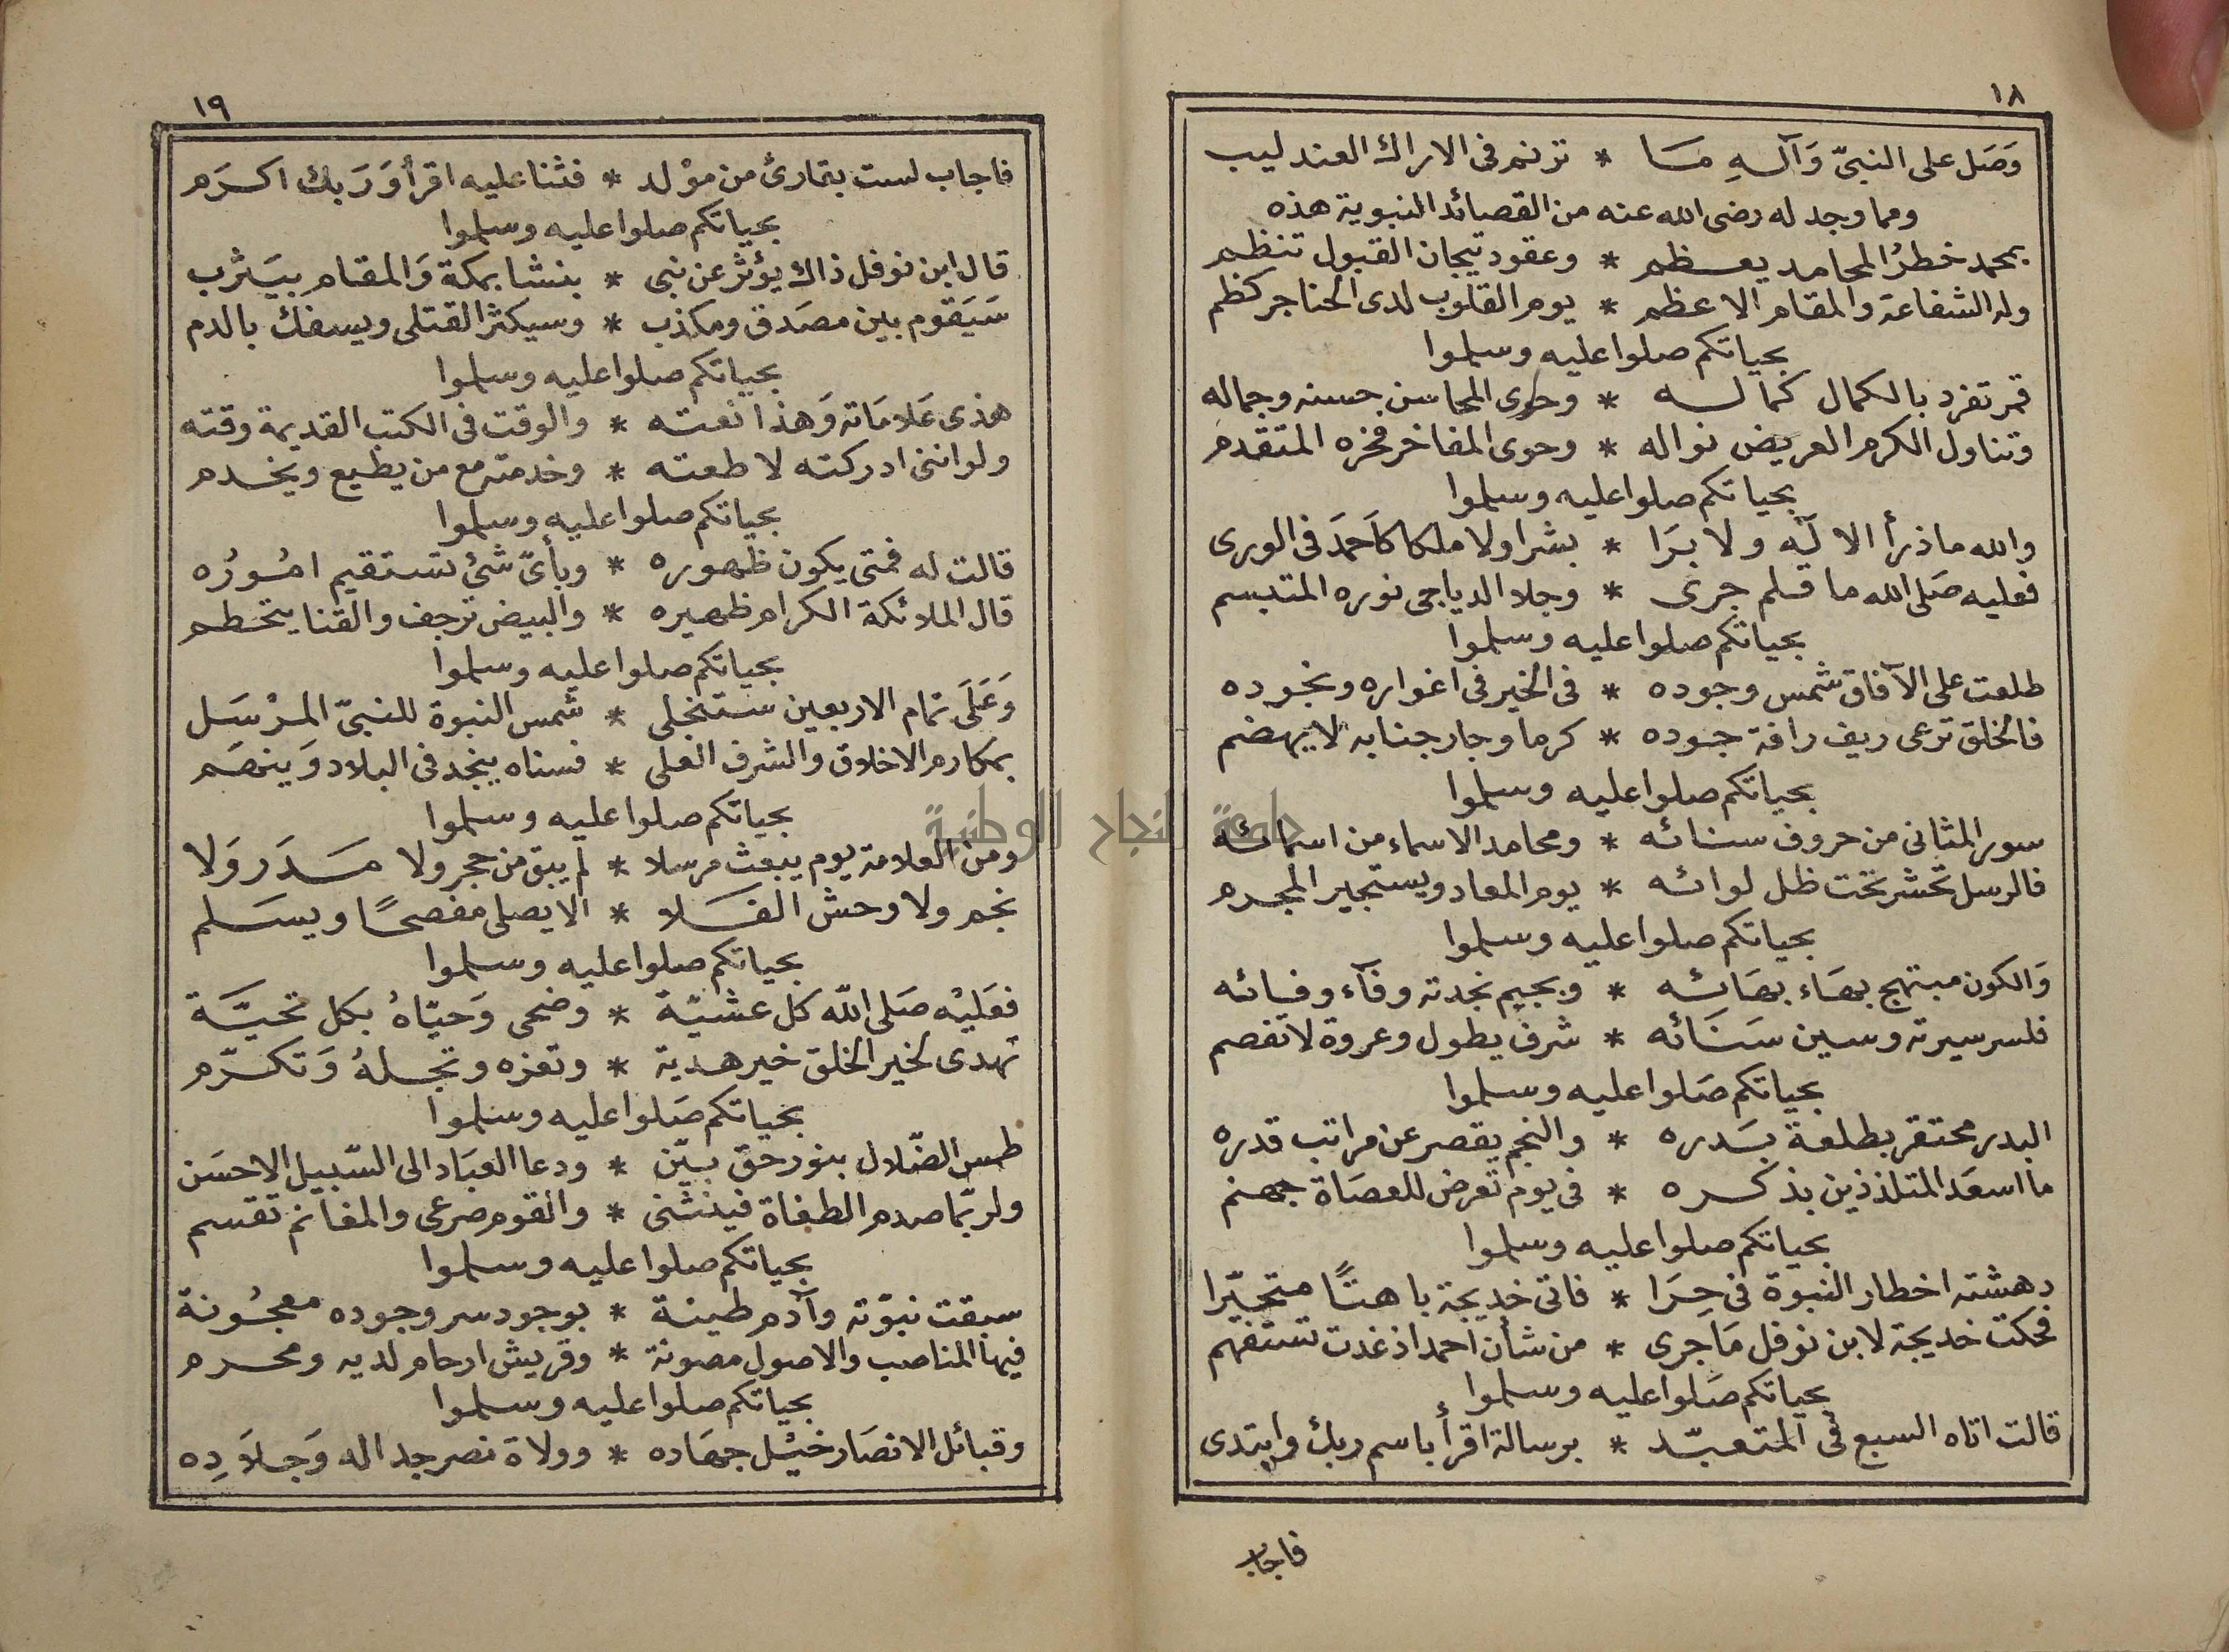 ١٨
وَصَل على النبيّ وَآلهِ مَا * ترنم فى الاراك العندليب
ومما وجد له رضى الله عنه من القصائد النبوية هذه
بمحمد خطرُ المحامد يعظم * وعقود تيجان القبول تنظم
وله الشفاعة والمقام الاعظم * يوم القلوب لدى الحناجر كظم
بحياتكم صلوا عليه وسلموا
قمر تفرد بالكمال كماله * وحوى المحاسن حسنه وجماله
وتناول الكرم العريض نواله * وحوى المفاخر فخره المتقدم
بحياتكم صلوا عليه وسلموا
والله ما ذرأ الاله ولا بَرَا * بشرا ولا ملكا كاَحمَد فى الورى
فعليه صَلى الله ما قلم جرى * وجلا الدياجى نوره المتبسم
بحياتكم صلوا عليه وسلموا
طلعت على الآفاق شمس وجوده * فى الخير فى اغواره ونجوده
فالخلق ترعى ريف رافة جوده * كرما وجار جنابه لا يهضم
بحياتكم صلوا عليه وسلموا
سور المثانى من حروف سنائه * ومحامد الاسماء من اسمائه
فالرسل تحشر تحت ظل لوائه * يوم المعاد ويستجير المجرم
بحياتكم صلوا عليه وسلموا
وَالكون مبتهج بهَاء بهَائه * وبجيم نجدته وفآء وفائه
فلسر سيرته وسين سَنَائه * شرف يطول وعروة لا تفصم
بحياتكم صَلوا عليه وسلموا
البدر محتقر بطلعة بَدره * والنجم يقصر عن مراتب قدره
ما اسعَد المتلذذين بذكره * فى يوم تعرض للعصَاة جهنم
بحياتكم صلوا عليه وسلموا
دهشته اخطار النبوة فى حِرَا * فاتى خديجة باهتًا متحيّرا
فحكت خديجة لابن نوفل مَا جرى * من شأن احمد اذ غدت تستفهم
بحياتكم صَلوا عليه وسلموا
قالت اتاه السبع فى المتعبّد * برسالة اقرأ باسم ربك وابتدى
فاجاب
١٩
فاجاب لست بقارئ من موْلد * فثنا عليه اقرأ وَرَبك اكرَم
بحياتكم صلوا عليه وسلموا
قال ابن نوفل ذاك يؤثر عن نبى * ينشا بمكة وَالمقام بيَثرب
سَيَقوم بين مصَدق ومكذب * وسيكثر القتلى ويسفك بالدم
بحياتكم صلوا عليه وسلموا
هذى عَلامَاته وَهذا نعته * والوقت فى الكتب القديمة وقته
ولو اننى ادركته لاطعته * وخدمته مع من يطيع ويخدم
بحياتكم صلوا عليه وسلموا
قالت له فمتى يكون ظهوره * وبأىّ شئ تستقيم امُورُه
قال الملائكة الكرام ظهيره * والبيض ترجف والقنا يتحطم
بحياتكم صلوا عليه وسلموا
وَعَلَى تمام الاربعين ستنجلى * شمس النبوة للنبىّ المرْسَل
بمكارم الاخلاق والشرف العلى * فسناه ينجد فى البلاد وَيتهَم
بحياتكم صلوا عليه وسلموا
ومن العلامة يوم يبعث مرسلا * لم يبق من حجر ولا مَدَر وَلا
نجم ولا وحش الفَلا * الا يصلى مفصحًا ويسَلم
بحياتكم صلوا عليه وسلموا
فعَليْه صَلى اللّه كل عشيّة * وضحى وَحيّاهُ بكل تحيَّة
تهدى لخير الخلق خير هدية * وتعزه وتجلهُ وَتكرّم
بحياتكم صَلوا عليه وسلموا
طمس الضّلال بنور حق بيّن * ودعا العبَاد الى السّبيل الاحسَن
ولربّما صدم الطغاة فينثنى * والقوم صرعى والمغانم تقسم
بحياتكم صلوا عليه وسلموا
سبقت نبوّته وآدم طينة * بوجود سر وجوده معجُونة
فيها المناصب والاصول مصونة * وقريش ارحام لديه ومحرم
بحياتكم صلوا عليه وسلموا
وقبائل الانصَار خيْل جهَاده * وولاة نصر جداله وَجلاَدِه
جامعة النجاح الوطنية